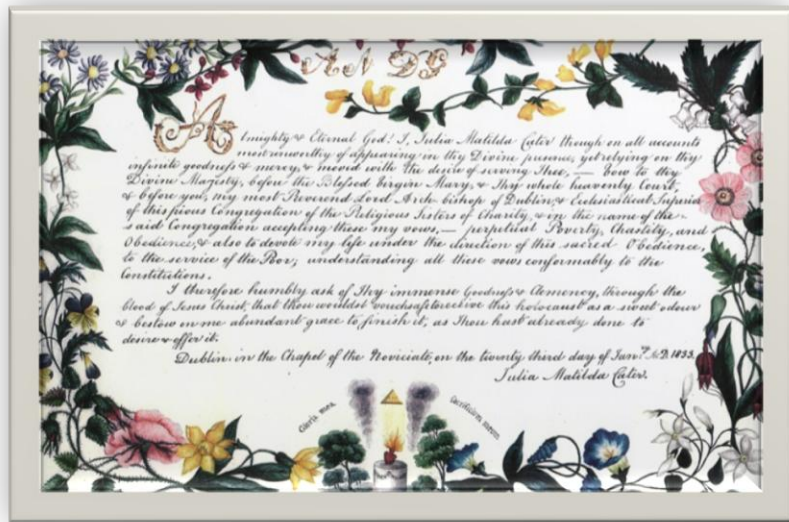 A M D G
Almighty & Eternal God! I, Julia Matilda Cater though on all accounts
most unworthy of appearing in thy Divine presence, yet relying on thy
infinite goodness & mercy, & moved with the desire of serving Thee, — vow to thy
Divine Majesty, before the Blessed Virgin Mary, & Thy whole heavenly Court,
& before you, my most Reverend Lord Arch bishop of Dublin, & Ecclesiastical Superior
of this pious Congregation of the Religious Sisters of Charity, & in the name of the
said Congregation accepting these my vows, — perpetual Poverty, Chastity, and
Obedience, & also to devote my life under the direction of this sacred Obedience,
to the service of the Poor; understanding all these vows conformably to the
Constitutions.
I therefore humbly ask of Thy immense Goodness & Clemency, through the
blood of Jesus Christ, that thou wouldst vouchsafe to receive this holocaust as a sweet odour
& bestow on me abundant grace to finish it, as Thou hast already done to
desire & offer it.
Dublin in the Chapel of the Noviciate, on the twenty third day of Jany. A.D. 1833.
Julia Matilda Cater.
sacrificium meum